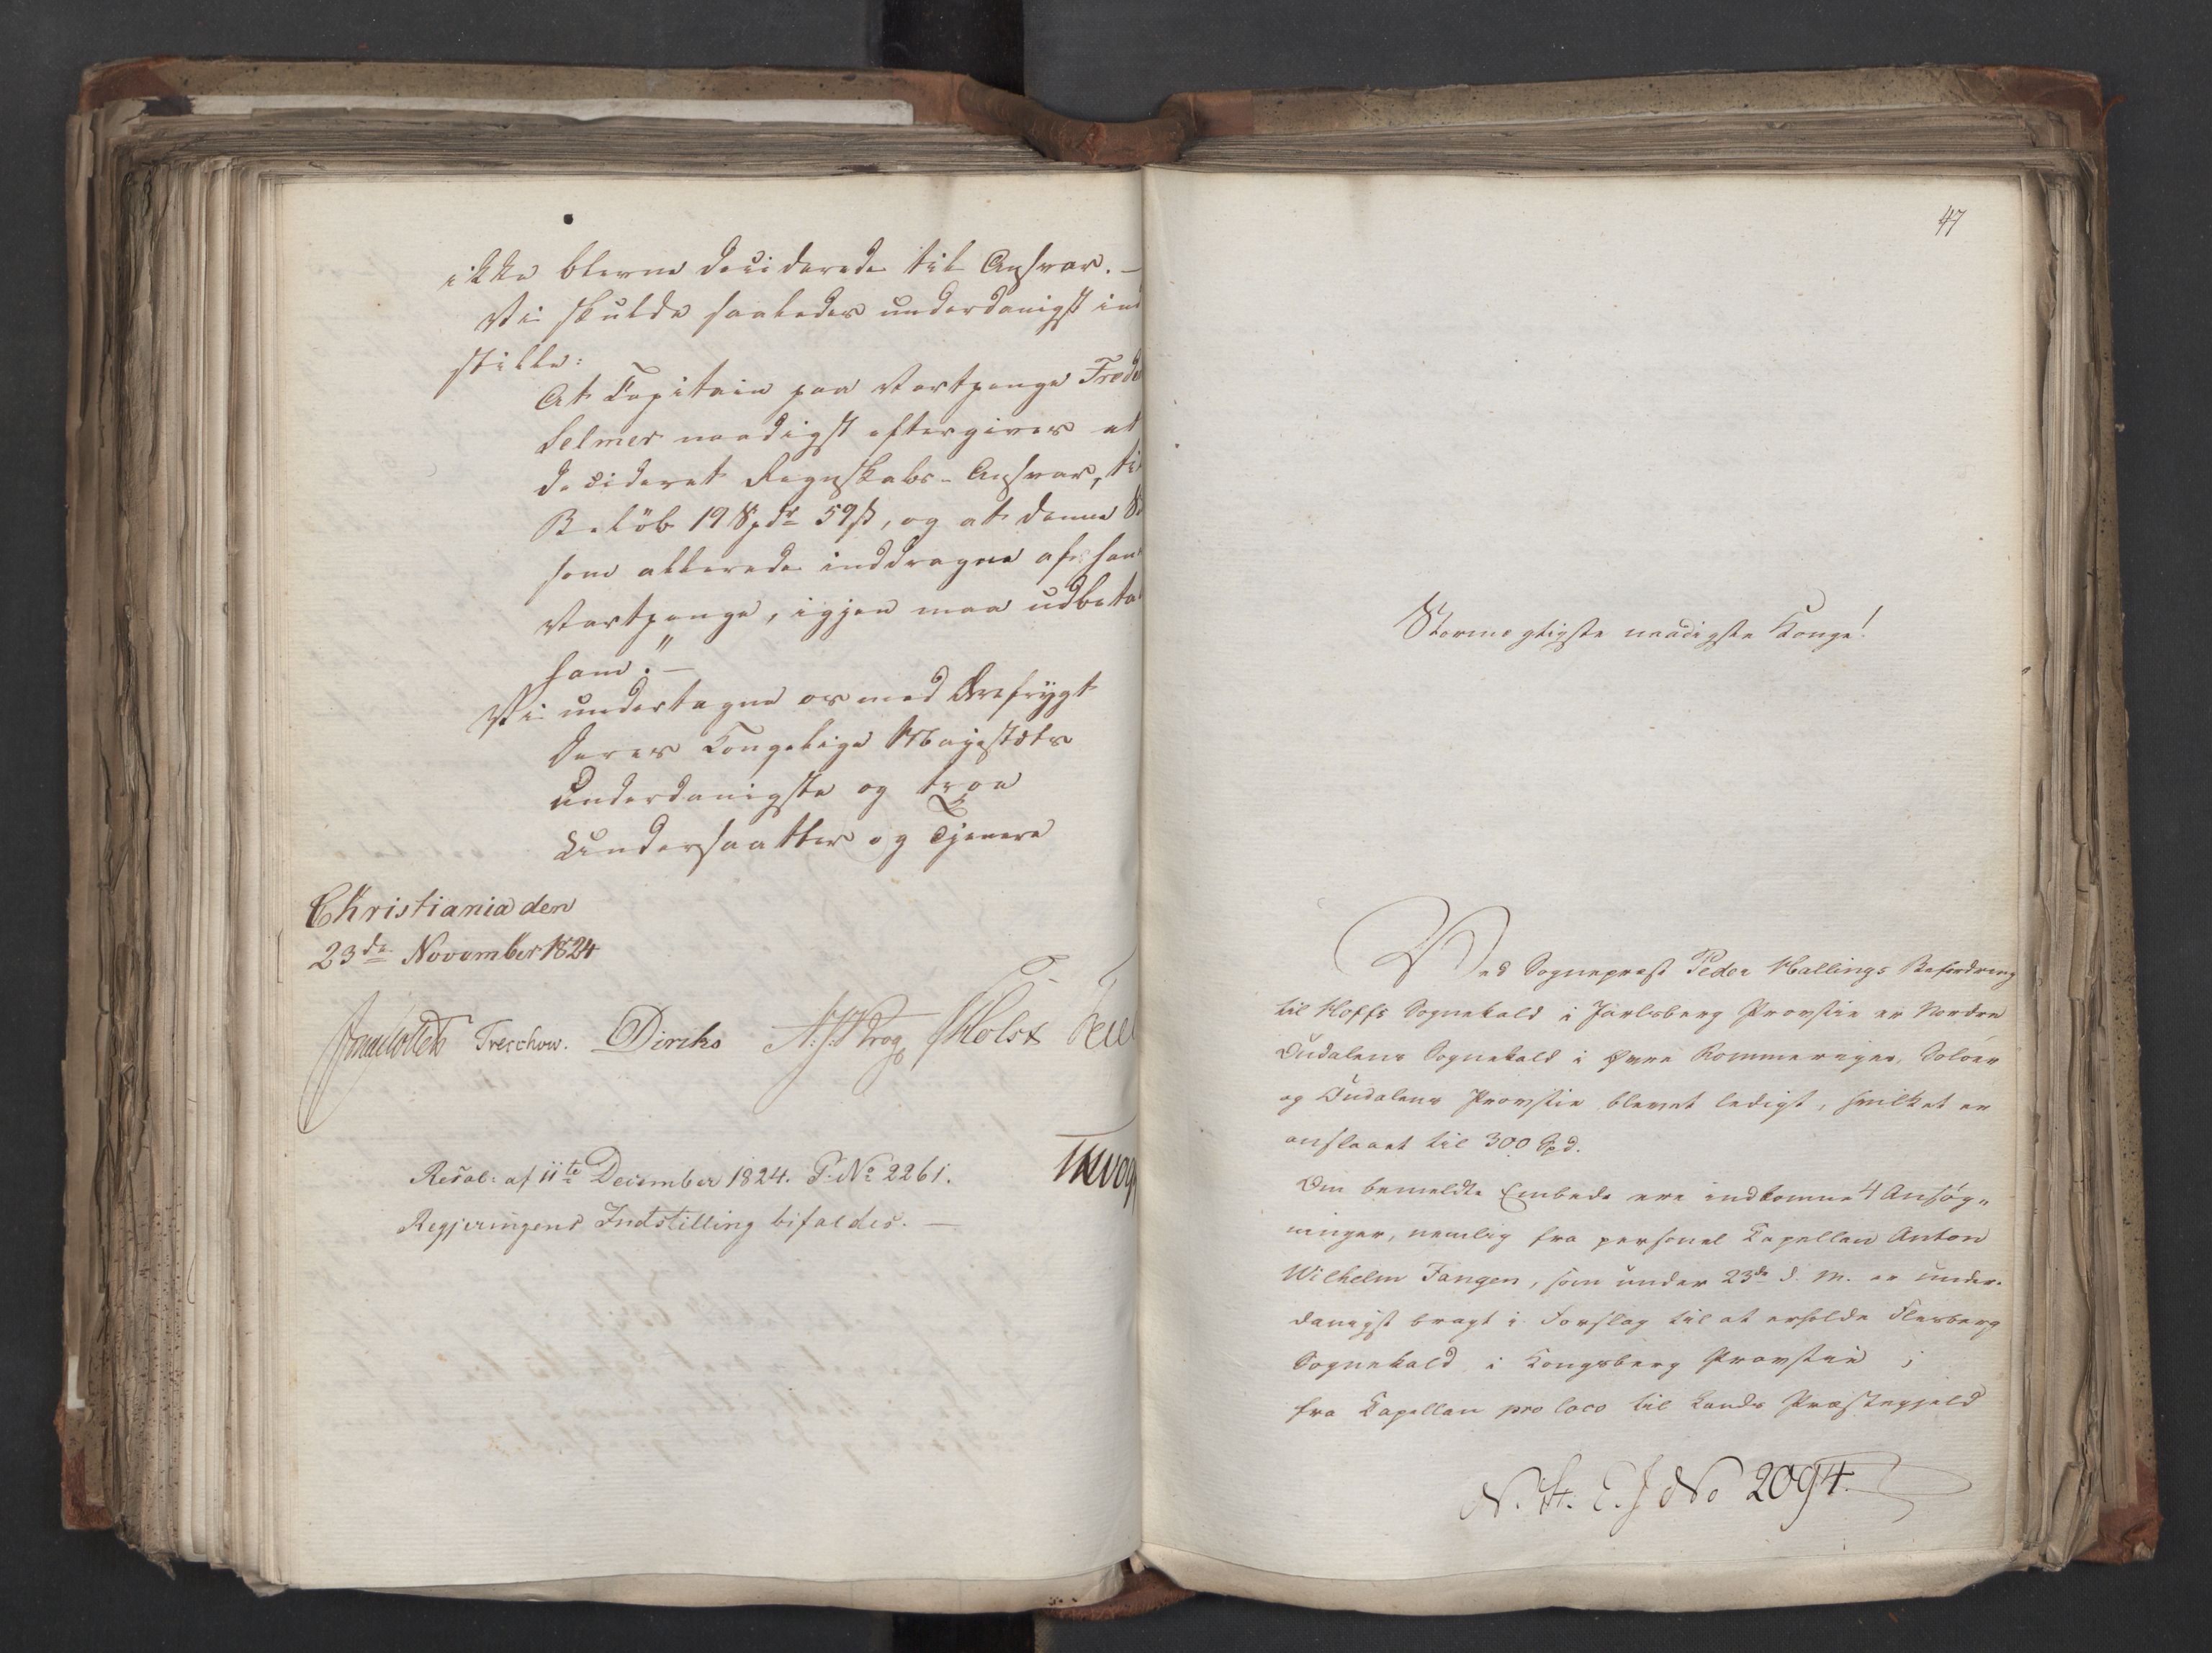 ikke blevne deciderede til Ansvar. –
Vi skulde saaledes underdanigst ind
stille:
At Capitain paa Vartpenge Frede
Selmer naadigst eftergives et
decideret Regnskabs-Ansvar, til
Beløb 19 Spdr 59 ß, og at denne S
som allerede inddragne af hans
Vartpenge, igjen maa udbetal
ham." –
Vi undertegne os med Ærefrygt
Deres Kongelige Majestæts
underdanigste og troe
Undersaatter og Tjenere
Christiania den
23de November 1824
Jonas Collett Treschow. Diriks N. J. Krog P. Holst
Resol: af 11te December 1824. P. No 2261.
Regjeringens Indstilling bifaldes. –
47
Stormægtigste naadigste Konge!
Ved Sognepræst Peder Mallings Befordring
til Hoffs Sognekald i Jarlsberg Provstie er Nordre
Oudalens Sognekald i Øvre Rommeriges, Soløer
og Oudalens Provstie blevet ledigt, hvilket er
anslaaet til 300 Spd.
Om bemeldte Embede ere indkomne 4 Ansøg-
ninger, nemlig fra personel Capellan Anton
Wilhelm Fangen, som under 23de d. M. er under-
danigst bragt i Forslag til at erholde Flesberg
Sognekald i Kongsberg Provstie;
fra Capellan pro loco til Lands Præstegjeld
N. St. E. J No 2094.